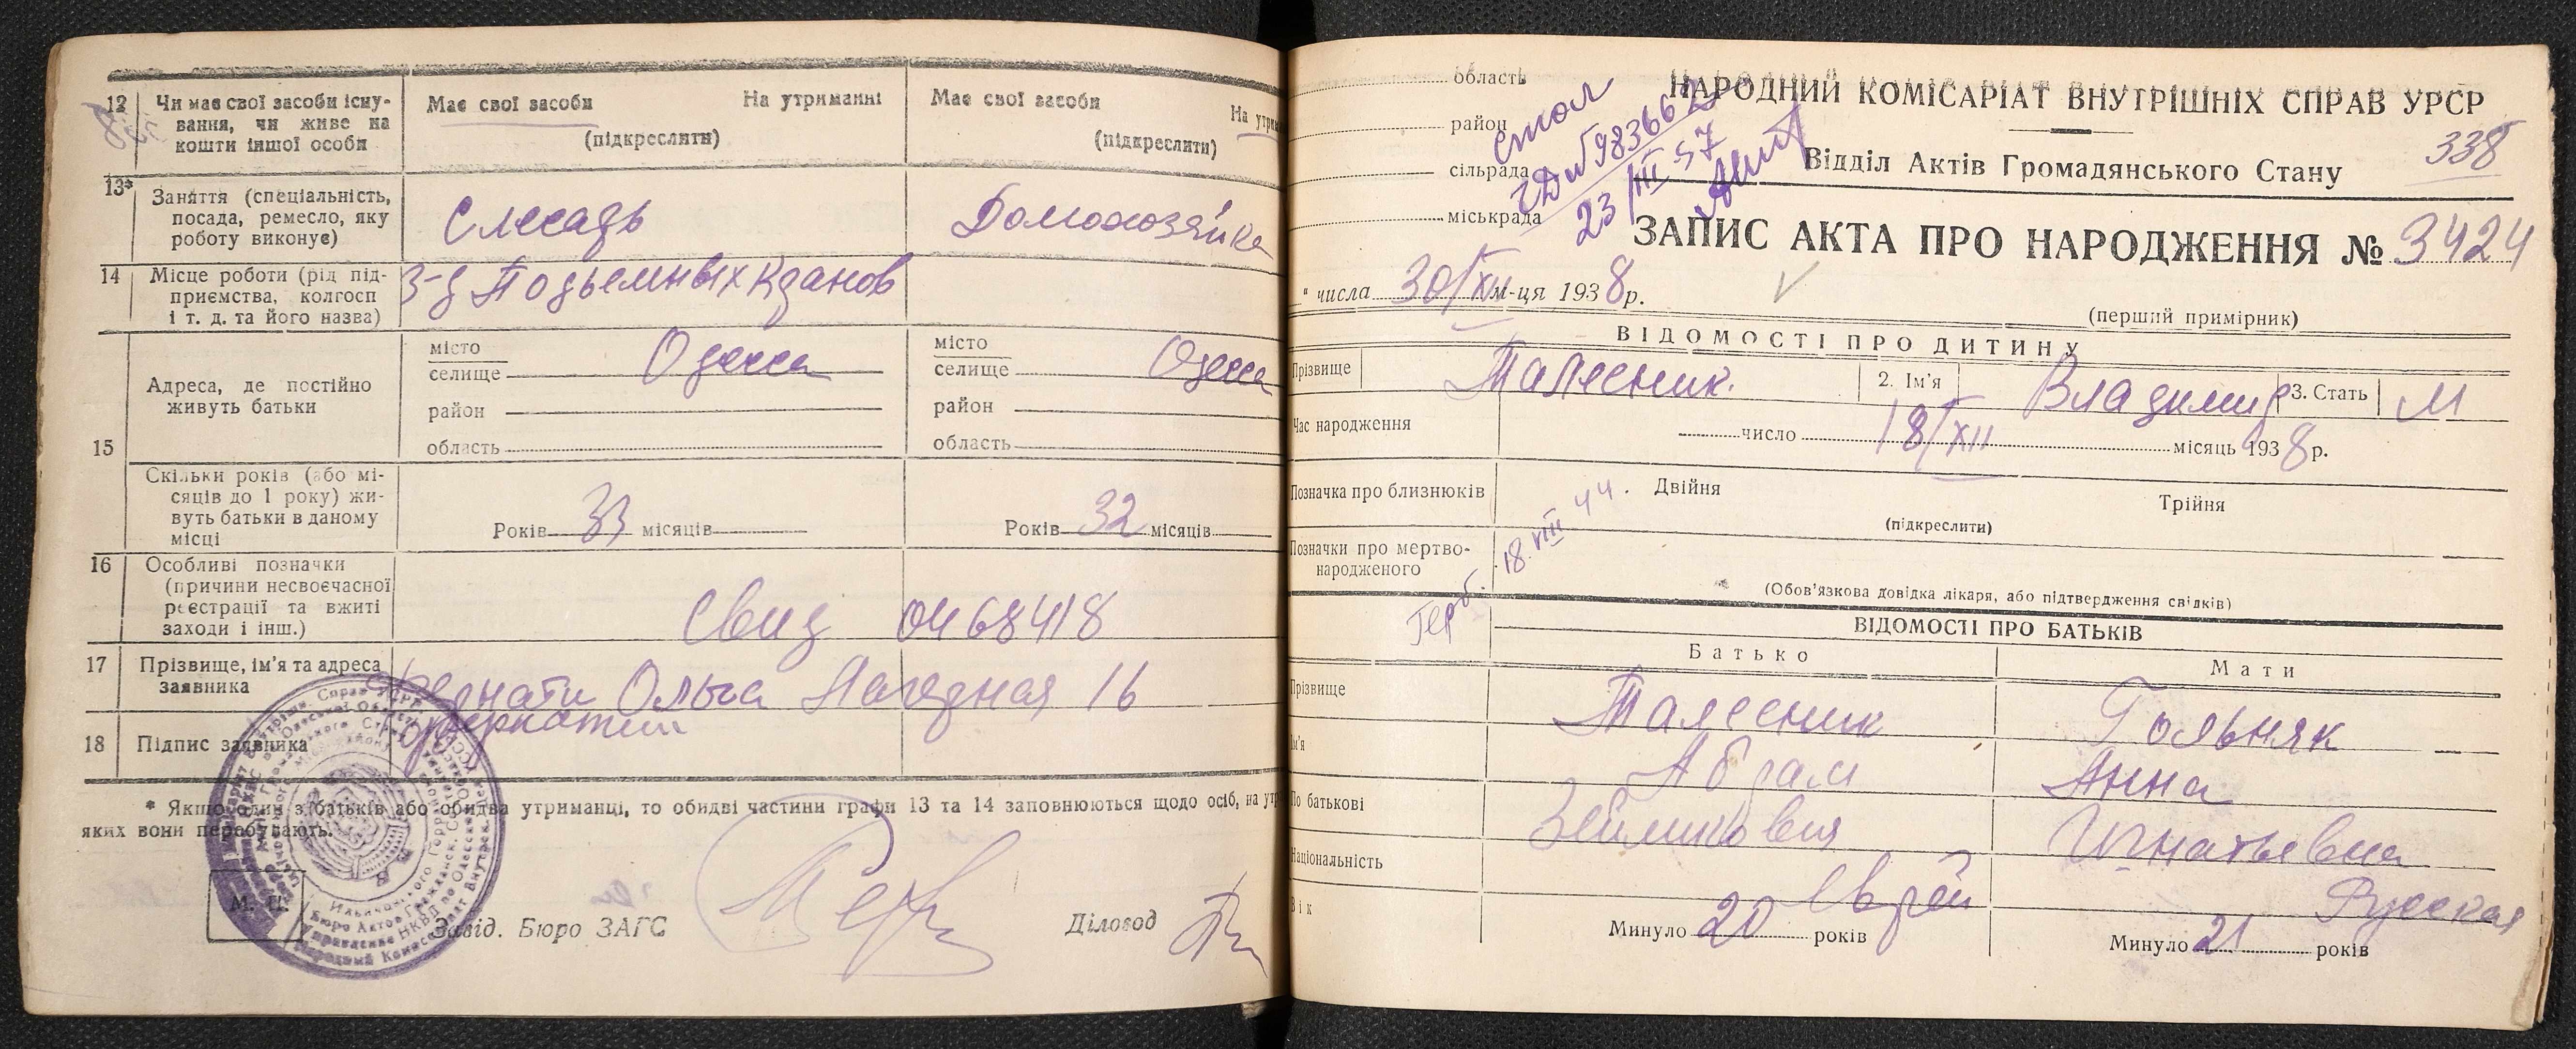 12 Чи має свої засоби існу-
вання, чи живе на
кошти іншої особи
Має свої засоби На утриманні
(підкреслити)
Має свої засоби
(підкреслити)
13* Заняття (спеціальність,
посада, ремесло, яку
роботу виконує)
Слесарь
Домохозяйка
14 Місце роботи (рід під-
приємства, колгосп
і т. д. та його назва)
З-д Подъемных кранов
15
Адреса, де постійно
живуть батьки
місто
селище Одесса
район
область
місто
селище Одесса
район
область
Скільки років (або мі-
сяців до 1 року) жи-
вуть батьки в даному
місці
Років 33 місяців
Років 32 місяців
16 Особливі позначки
(причини несвоєчасної
реєстрації та вжиті
заходи і інш.)
Свид 0468418
17 Прізвище, ім'я та адреса
заявника
Ольга Нагорная 16
18 Підпис заявника
* Якщо один з батьків або обидва утриманці, то обидві частини графи 13 та 14 заповнюються щодо осіб, на
яких вони перебувають.
М. П.
Завід. Бюро ЗАГС
Діловод
область
район
сільрада
міськрада
23/III 57
НАРОДНИЙ КОМІСАРІАТ ВНУТРІШНІХ СПРАВ УРСР
Відділ Актів Громадянського Стану
338
ЗАПИС АКТА ПРО НАРОДЖЕННЯ № 3424
" числа 30/XII м-ця 1938 р.
(перший примірник)
ВІДОМОСТІ ПРО ДИТИНУ
Прізвище Талесник 2. Ім'я Владимир 3. Стать М
Час народження число 18/XII місяць 1938 р.
Позначка про близнюків Двійня Трійня
(підкреслити)
Позначки про мертво-
народженого
(Обов'язкова довідка лікаря, або підтвердження свідків)
Герб. 18.VIII 44.
ВІДОМОСТІ ПРО БАТЬКІВ
Батько Мати
Прізвище Талесник Гольняк
Ім'я Абрам Анна
По батькові Зейликович Игнатьевна
Національність Еврей Русская
Вік Минуло 20 років Минуло 21 років